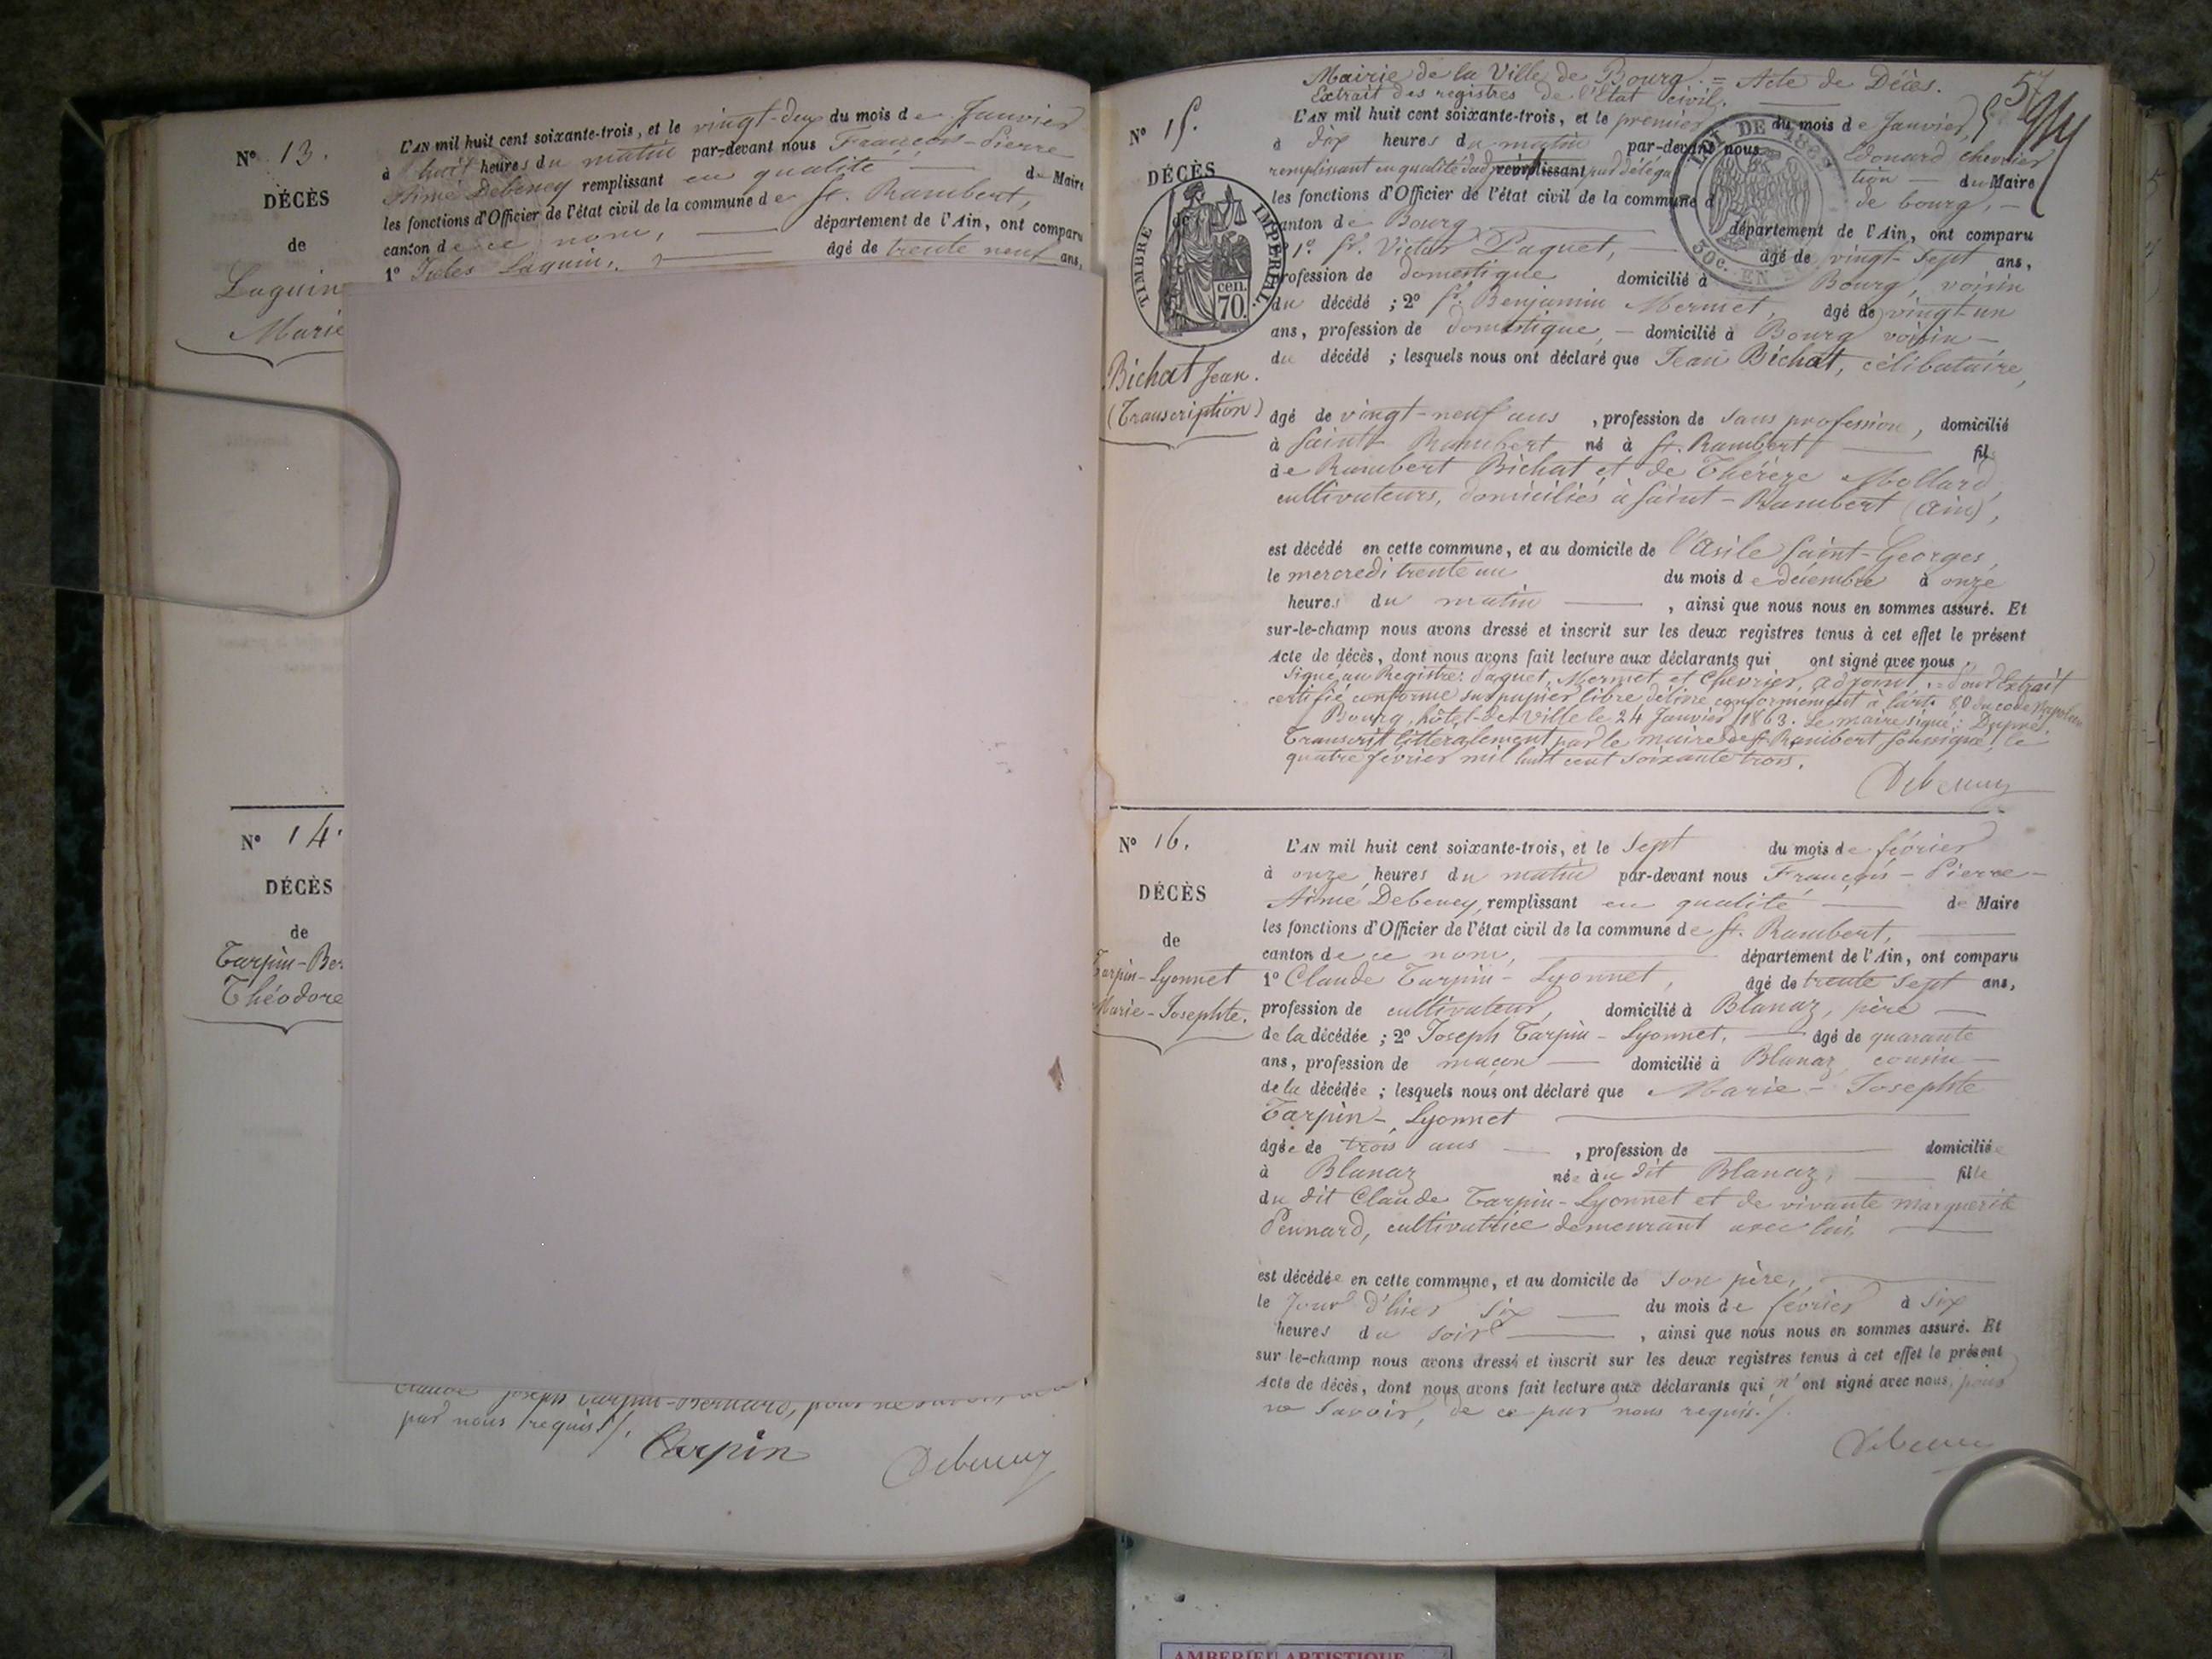 N° 13.
DÉCÈS
de
Laguin
Marie
L'AN mil huit cent soixante-trois, et le vingt-deux du mois de Janvier
à huit heures du matin par-devant nous François-Pierre
Aimé Debeney remplissant en qualité de Maire
les fonctions d'Officier de l'état civil de la commune de St. Rambert,
canton de ce nom, département de l'Ain, ont comparu
1° Jules Laguin, âgé de trente neuf ans,
N° 14.
DÉCÈS
de
Tarpin-Ber
Théodore
Claude Joseph Tarpin-Bernard, pour ne
par nous requis./.
Tarpin Debeney
57
Mairie de la Ville de Bourg. = Acte de Décès.
Extrait des registres de l'Etat civil.
N° 15.
DÉCÈS
de
TIMBRE IMPERIAL
70 cen.
Bichat Jean.
(Transcription)
L'AN mil huit cent soixante-trois, et le premier du mois de Janvier,
à dix heures du matin par-devant nous Edouard chevrier
remplissant en qualité d'adj remplissant par déléga tion du Maire
les fonctions d'Officier de l'état civil de la commune d de bourg,
canton de Bourg département de l'Ain, ont comparu
1° Sr. Victor Paquet, âgé de vingt-sept ans,
profession de domestique domicilié à Bourg, voisin
du décédé ; 2° Sr. Benjamin Mermet, âgé de vingt-un
ans, profession de domestique, domicilié à Bourg voisin
du décédé ; lesquels nous ont déclaré que Jean Bichat, célibataire,
âgé de vingt-neuf ans , profession de sans profession, domicilié
à Saint Rambert né à St. Rambert fils
de Rambert Bichat et de Thérèze Mollard,
cultivateurs, domiciliés à Saint-Rambert (Ain),
est décédé en cette commune, et au domicile de l'Asile Saint-Georges,
le mercredi trente un du mois de décembre à onze
heures du matin , ainsi que nous nous en sommes assuré. Et
sur-le-champ nous avons dressé et inscrit sur les deux registres tenus à cet effet le présent
Acte de décès, dont nous avons fait lecture aux déclarants qui ont signé avec nous.
Signé au Registre: Paquet, Mermet et Chevrier, adjoint. = Pour Extrait
certifié conforme sur papier libre délivré conformément à l'art. 80 du code Napoléon
Bourg, hôtel-de-Ville le 24 Janvier 1863. Le maire signé:
Transcrit littéralement par le maire de St. Rambert soussigné, le
quatre février mil huit cent soixante trois.
Debeney
N° 16.
DÉCÈS
de
Tarpin-Lyonnet
Marie-Josephte.
L'AN mil huit cent soixante-trois, et le sept du mois de février
à onze heures du matin par-devant nous François-Pierre-
Aimé Debeney, remplissant en qualité de Maire
les fonctions d'Officier de l'état civil de la commune de St. Rambert,
canton de ce nom, département de l'Ain, ont comparu
1° Claude Tarpin-Lyonnet, âgé de trente sept ans,
profession de cultivateur, domicilié à Blanaz, père
de la décédée ; 2° Joseph Tarpin-Lyonnet, âgé de quarante
ans, profession de maçon domicilié à Blanaz, cousin
de la décédée ; lesquels nous ont déclaré que Marie-Josephte
Tarpin-Lyonnet
âgée de trois ans , profession de domiciliée
à Blanaz née au dit Blanaz, fille
du dit Claude Tarpin-Lyonnet et de vivante marguerite
Pennard, cultivatrice demeurant avec lui,
est décédée en cette commune, et au domicile de son père,
le jour d'hier six du mois de février à six
heures du soir , ainsi que nous nous en sommes assuré. Et
sur le-champ nous avons dressé et inscrit sur les deux registres tenus à cet effet le présent
Acte de décès, dont nous avons fait lecture aux déclarants qui n'ont signé avec nous, pour
ne savoir, de ce par nous requis./.
Debeney
AMBERIEU ARTISTIQUE